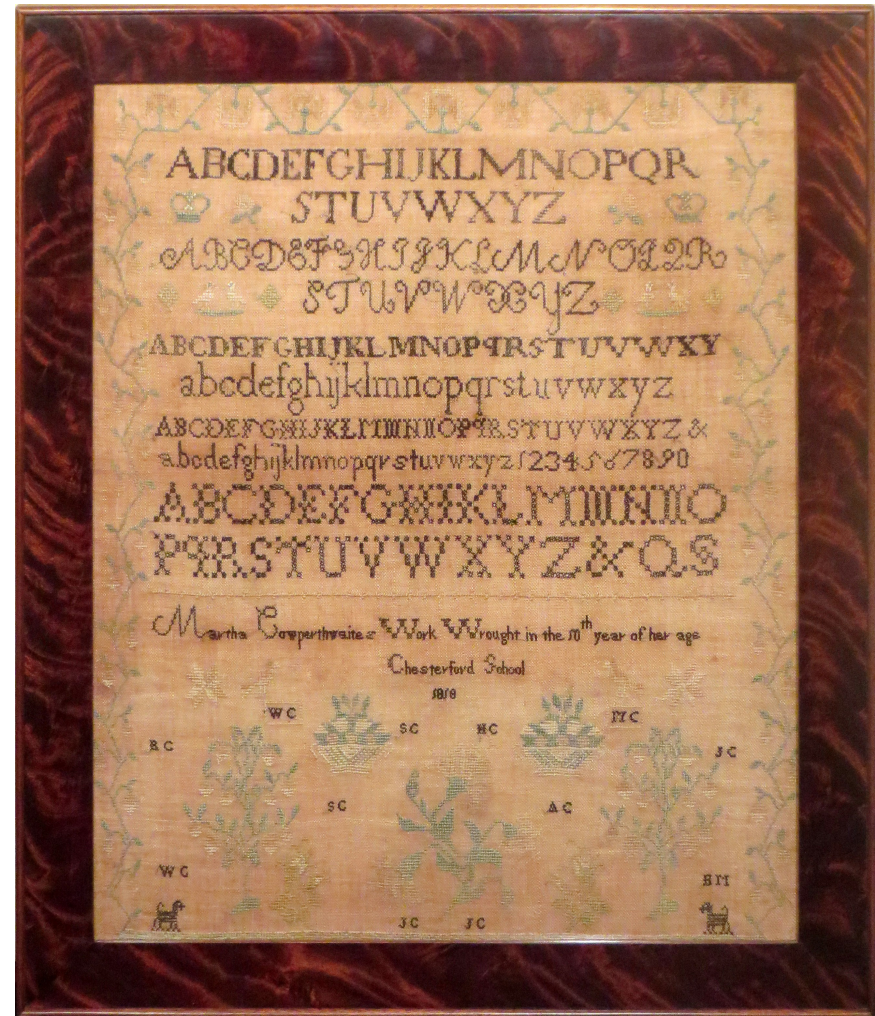 ABCDEFGHIJKLMNOPQR
STUVWXYZ
ABCDEFGHIJKLMNOPQR
STUVWXYZ
ABCDEFGHIJKLMNOPqRSTUVWXY
abcdefghijklmnopqrstuvwxyz
ABCDEFGHIJKLMNOPqRSTUVWXYZ&
abcdefghijklmnopqrstuvwxyz1234567890
ABCDEFGHIKLMNO
PqRSTUVWXYZ&QS
Martha Cowperthwaites Work Wrought in the 10th year of her age
Chesterford School
1818
WC MC
SC HC
RC JC
SC AC
WC HM
JC JC